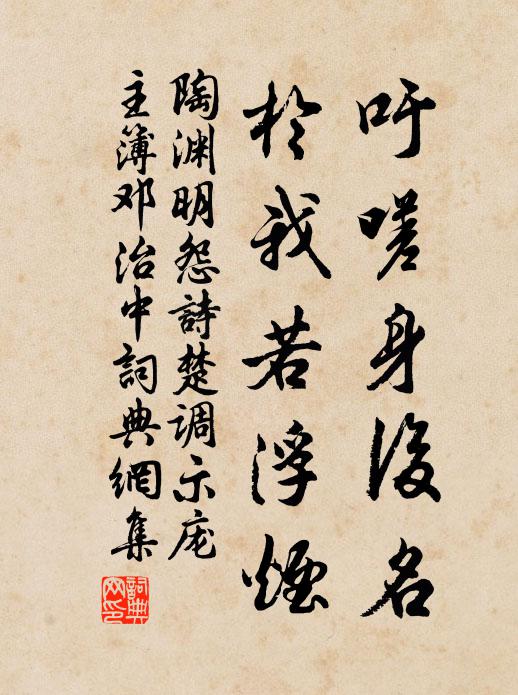 吁嗟身後名
於我若浮煙
陶渊明怨詩楚调示庞
主簿邓治中詞典網集
詞典網印